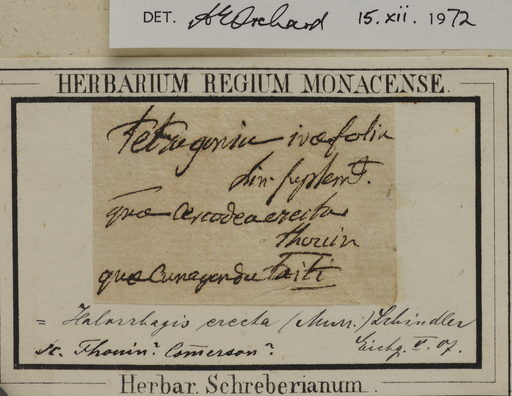 DET. AE Orchard 15.xii. 1972
HERBARIUM REGIUM MONACENSE.
Tetragonia ivæfolia
Lin. suplemt.
quæ Cercodea erecta
thouin
quæ Cunegonda taiti
= Halorrhagis erecta (Murr.) Schindler
Thouin. Comerson. Eichg. V. 07.
Herbar. Schreberianum.